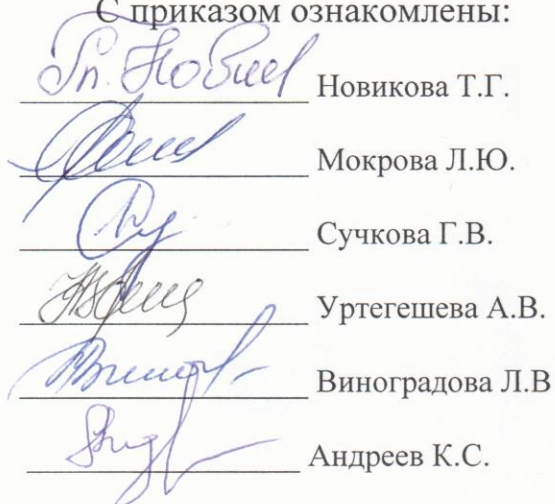 С приказом ознакомлены:
Новикова Т.Г.
Мокрова Л.Ю.
Сучкова Г.В.
Уртегешева А.В.
Виноградова Л.В
Андреев К.С.